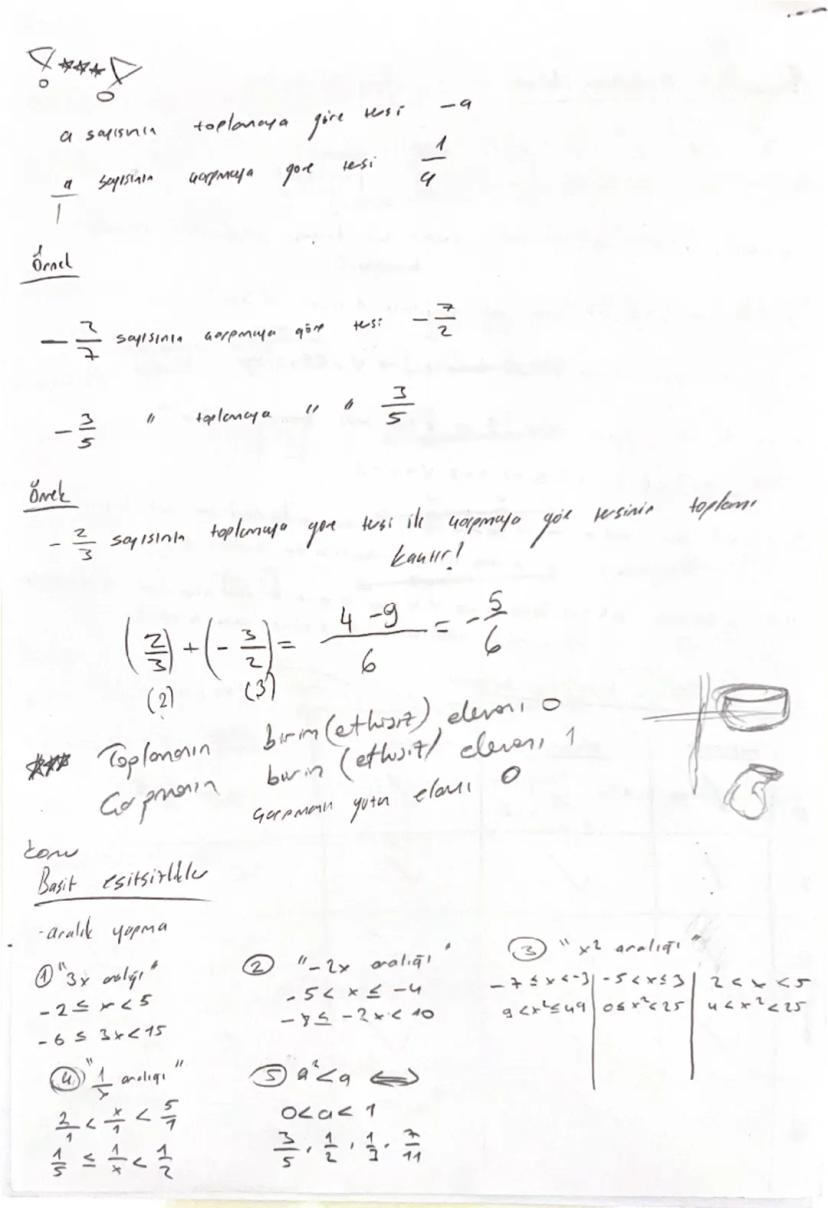 ***
a sayısının toplamaya göre tersi -a
a/1 sayısının çarpmaya göre tersi 1/a
Örnek
-2/7 sayısının çarpmaya göre tersi -7/2
-3/5 " toplamaya " " 3/5
Örnek
-2/3 sayısının toplamaya göre tersi ile çarpmaya göre tersinin toplamı
kaçtır!
(2/3) + (-3/2) = 4-9/6 = -5/6
(2) (3)
*** Toplamanın birim (etkisiz) elemanı 0
Çarpmanın birim (etkisiz) elemanı 1
Çarpmanın yutan elemanı 0
konu
Basit eşitsizlikler
-aralık yapma
① "3x aralığı"
-2 ≤ x < 5
-6 ≤ 3x < 15
② "-2x aralığı"
-5 < x ≤ -4
-8 ≤ -2x < 10
③ "x² aralığı"
-7 ≤ x < -3 | -5 < x ≤ 3 | 2 < x < 5
9 < x² ≤ 49 | 0 ≤ x² < 25 | 4 < x² < 25
④ "1/x aralığı"
2/1 < x/1 < 5/1
1/5 ≤ 1/x < 1/2
⑤ a² < a ⟺
0 < a < 1
3/5, 1/2, 1/3, 7/11